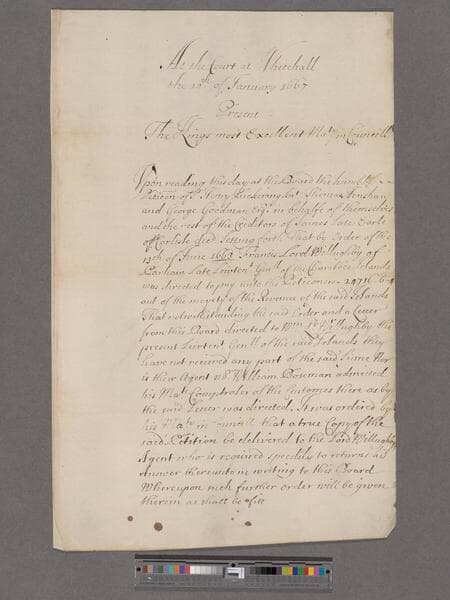 At the Court at Whitehall
the 10th of January 1667
Present
The Kings most Excellent Maty in Councill
Upon reading this day at the Board the humble
Peticon of Sr Henry Puckering Kt Thomas Henshaw
and George Goodman Esqr in behalfe of themselves
and the rest of the Creditors of James Late Earle
of Carlisle decd Setting forth That by Order of the
13th of June 1663 Francis Lord Willughby of
Parham Late Lewtent Genll of the Charibee Islands
was directed to pay unto the Peticoners
out of the moyety of the Revenue of the said Islands
That notwithstanding the said Order and a Letter
from this Board directed to Wm Ld Willughby the
present Lewtent Genll of the said Islands they
have not received any part of the said Summe Nor
is their Agent William Boseman admitted
his Mats Comptroler of the Customes there as by
the said Letter was directed. It was ordered by
his Maty in Councill that a true Copy of the
said Petition be delivered to the Lord Willughbys
Agent who is required speedily to returne an
Answer thereunto in writing to this Board
Whereupon such further order will be given
therein as shall be fitt